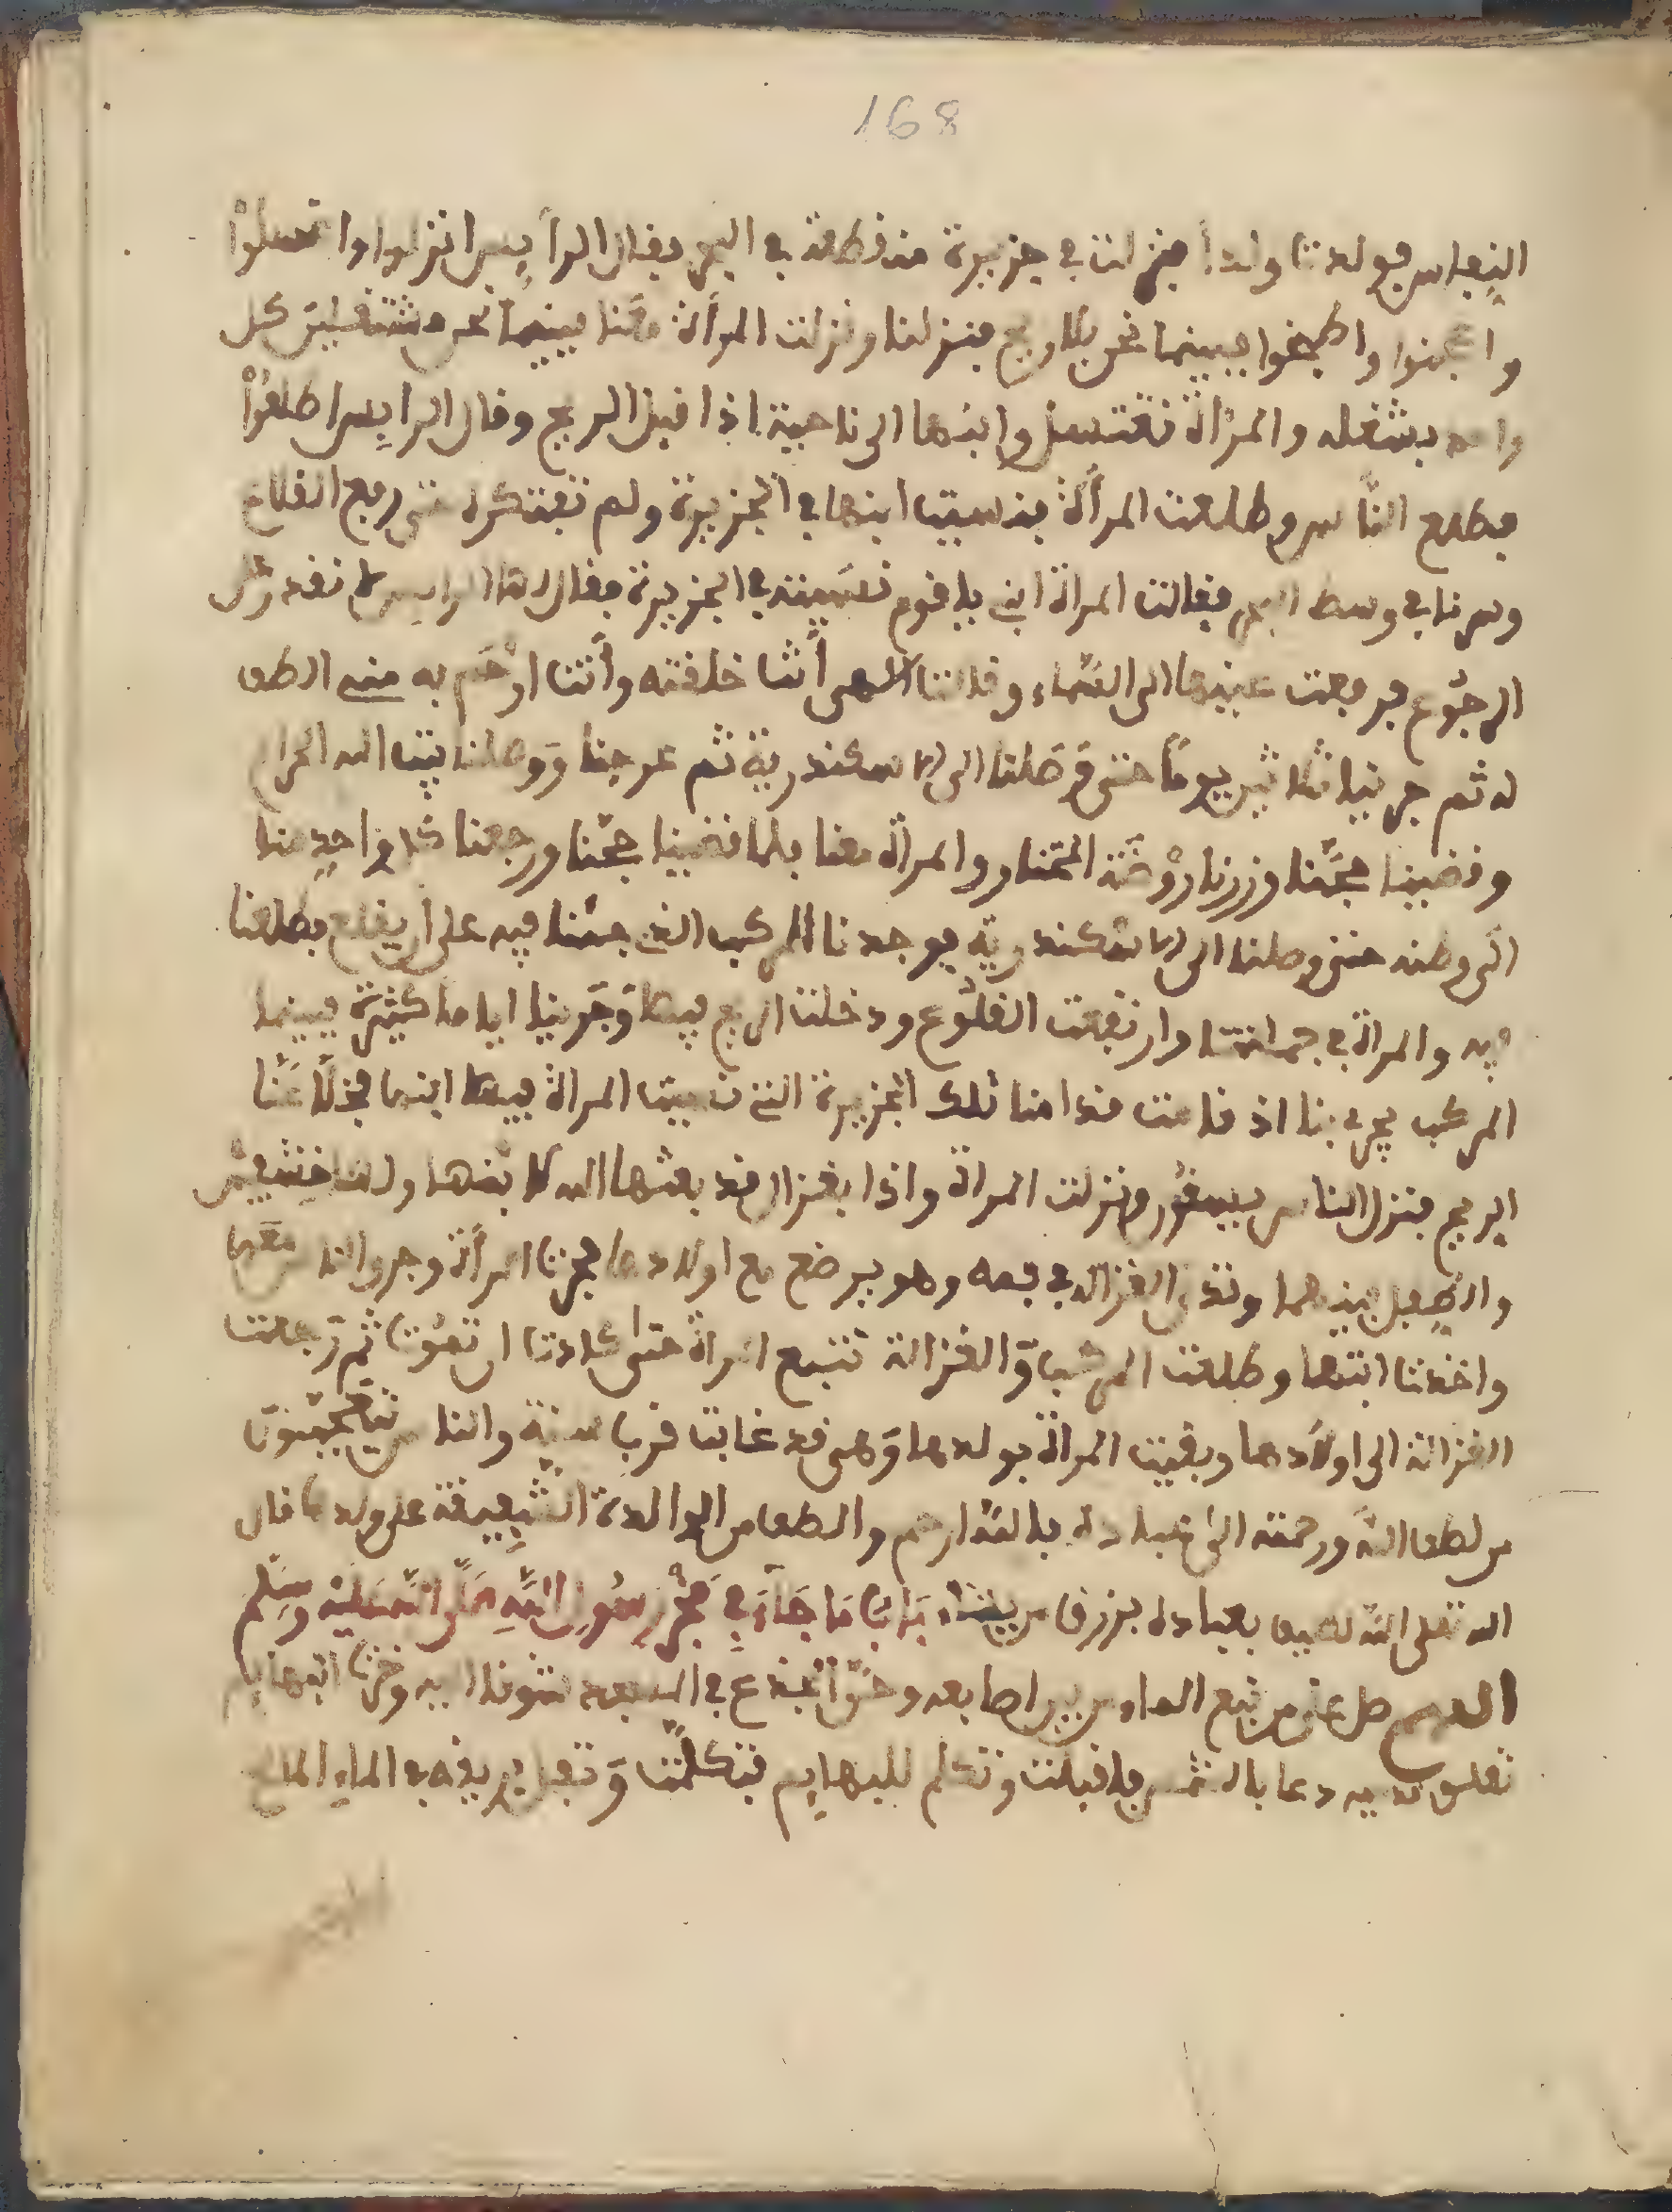 168
النفاس فولدت ولدا فنزلت في جزيرة منقطعة في البحر فقال الرأيس انزلوا واغسلوا
واعجنوا واطبخوا فبينما نحن بلا ريح فنزلنا ونزلت المرأة معنا فبينما نحن مشتغلين كل
واحد بشغله والمرأة تغتسل وابنها الى ناحية اذا قبل الريح وقال الرايس اطلعوا
فطلع الناس وطلعت المرأة فنسيت ابنها في الجزيرة ولم تفتكره حتى رفع القلاع
وسرنا في وسط البحر فقالت المراة ابني ياقوم نسيته في الجزيرة فقال لها الرايس لم نقدر على
الرجوع فرفعت عينيها الى السماء وقالت الاهى أنت خلقته وأنت ارحم به مني الطف
له ثم جرينا ثلاثين يوما حتى وصلنا الى الاسكندرية ثم خرجنا ووصلنا بيت الله الحرام
وقضينا حجنا وزرنا روضة المختار والمرأة معنا فلما قضينا حجنا ورجعنا كل واحد منا
الى وطنه حتى وصلنا الى الاسكندرية فوجدنا المركب الذي جئنا فيه على ان يقلع فطلعنا
فيه والمراة في جملتنا وارتفعت القلوع ودخلت الريح فيها وجرينا اياما كثيرة فبينما
المركب يجري بنا اذ قامت قدامنا تلك الجزيرة التي نسيت المراة فيها ابنها فخلا عنا
الريح فنزل الناس ونزلت المراة واذا بغزال قد بعثها الله لابنها ولها خشفين
والطفل بينهما وثدي الغزالة في فمه وهو يرضع مع اولادها فجرت المرأة وجروا الناس معها
واخذت ابنها وطلعت المركب والغزالة تتبع المراة حتى كادت ان تموت ثم رجعت
الغزالة الى اولادها وبقيت المراة بولدها وهي قد غابت قرب سنة والناس يتعجبون
من لطف الله ورحمته الى عباده فالله ارحم والطف من الوالدة الشفيقة على ولدها قال
الله تعلى الله لطيف بعباده يرزق من يشاء باب ما جاء في رسول الله صلى الله عليه وسلم
اللهم صل على من نبع الماء من بين اصابعه وحن الجذع في المسجد شوقا اليه وخرت البهايم
دعا بالشمس فاقبلت وتكلم للبهايم فتكلمت وتفل بريقه في الماء المالح